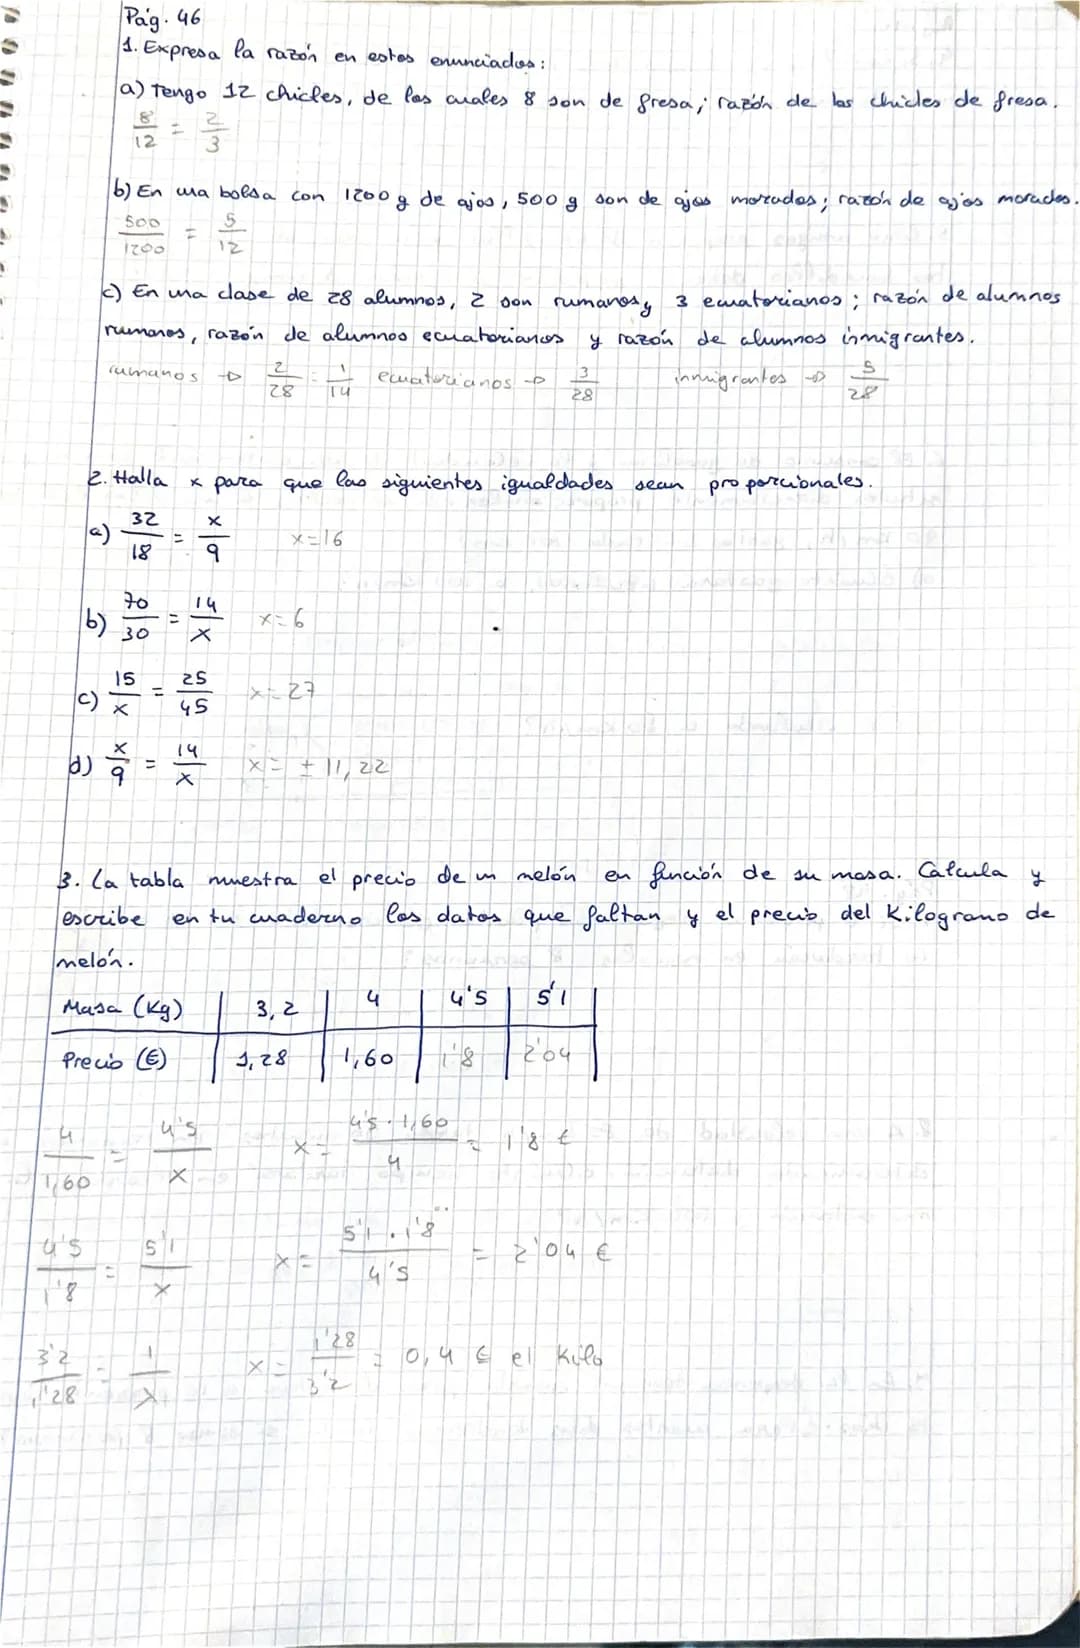 Pág. 46
1. Expresa la razón en estos enunciados:
a) Tengo 12 chicles, de los cuales 8 son de fresa; razón de los chicles de fresa.
8/12 = 2/3
b) En una bolsa con 1200 g de ajos, 500 g son de ajos morados; razón de ajos morados.
500/1200 = 5/12
c) En una clase de 28 alumnos, 2 son rumanos y 3 ecuatorianos; razón de alumnos
rumanos, razón de alumnos ecuatorianos y razón de alumnos inmigrantes.
rumanos → 2/28 = 1/14 ecuatorianos → 3/28 inmigrantes → 5/28
2. Halla x para que las siguientes igualdades sean proporcionales.
a) 32/18 = x/9 x=16
b) 70/30 = 14/x x=6
c) 15/x = 25/45 x=27
d) x/9 = 14/x x= ± 11,22
3. La tabla muestra el precio de un melón en función de su masa. Calcula y
escribe en tu cuaderno los datos que faltan y el precio del Kilogramo de
melón.
Masa (Kg) | 3,2 | 4 | 4'5 | 5'1
Precio (€) | 1,28 | 1,60 | 1'8 | 2'04
4/1,60 = 4'5/x x = 4'5 · 1,60/4 = 1'8 €
4'5/1'8 = 5'1/x x = 5'1 · 1'8/4'5 = 2'04 €
3'2/1'28 = 1/x x = 1'28/3'2 = 0,4 € el kilo